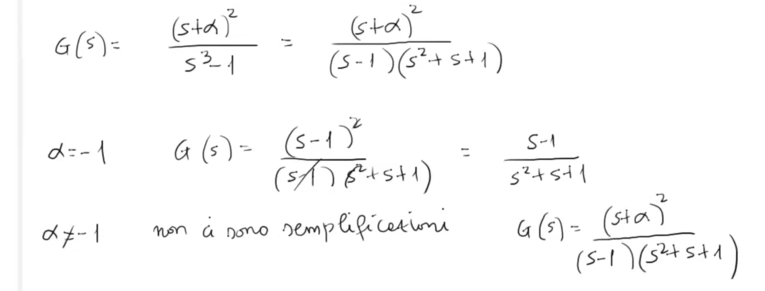 G(s) = (s+α)² / (s³-1) = (s+α)² / ((s-1)(s²+s+1))
α=-1 G(s) = (s-1)² / ((s-1)(s²+s+1)) = (s-1) / (s²+s+1)
α≠-1 non ci sono semplificazioni G(s) = (s+α)² / ((s-1)(s²+s+1))